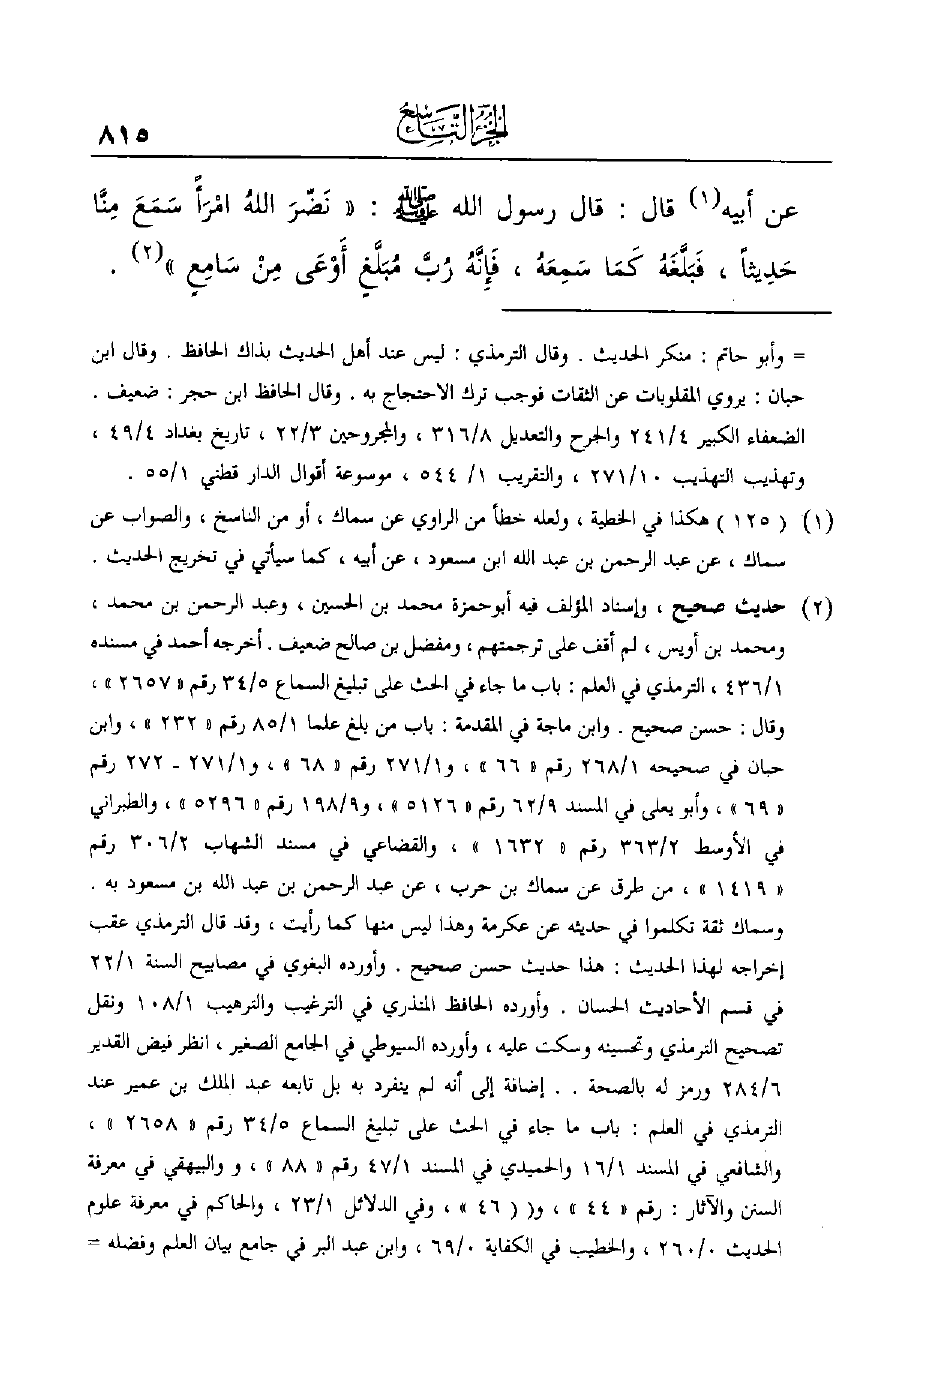 الجزء التاسع
٨١٥
عن أبيه(١) قال : قال رسول الله ﷺ : « نَضَّرَ اللهُ امْرَأً سَمَعَ مِنَّا
حَدِيثاً ، فَبَلَّغَهُ كَمَا سَمِعَهُ ، فَإِنَّهُ رُبَّ مُبَلَّغٍ أَوْعَى مِنْ سَامِعٍ »(٢) .
= وأبو حاتم : منكر الحديث . وقال الترمذي : ليس عند أهل الحديث بذاك الحافظ . وقال ابن
حبان : يروي المقلوبات عن الثقات فوجب ترك الاحتجاج به . وقال الحافظ ابن حجر : ضعيف .
الضعفاء الكبير ٢٤١/٤ والجرح والتعديل ٣١٦/٨ ، والمجروحين ٢٢/٣ ، تاريخ بغداد ٤٩/٤ ،
وتهذيب التهذيب ٢٧١/١٠ ، والتقريب ١/ ٥٤٤ ، موسوعة أقوال الدار قطني ٥٥/١ .
(١) ( ١٢٥ ) هكذا في الخطية ، ولعله خطأ من الراوي عن سماك ، أو من الناسخ ، والصواب عن
سماك ، عن عبد الرحمن بن عبد الله ابن مسعود ، عن أبيه ، كما سيأتي في تخريج الحديث .
(٢) حديث صحيح ، وإسناد المؤلف فيه أبوحمزة محمد بن الحسين ، وعبد الرحمن بن محمد ،
ومحمد بن أويس ، لم أقف على ترجمتهم ، ومفضل بن صالح ضعيف . أخرجه أحمد في مسنده
٤٣٦/١ ، الترمذي في العلم : باب ما جاء في الحث على تبليغ السماع ٣٤/٥ رقم « ٢٦٥٧ » ،
وقال : حسن صحيح . وابن ماجة في المقدمة : باب من بلغ علما ٨٥/١ رقم « ٢٣٢ » ، وابن
حبان في صحيحه ٢٦٨/١ رقم « ٦٦ » ، و٢٧١/١ رقم « ٦٨ » ، و٢٧١/١ ـ ٢٧٢ رقم
« ٦٩ » ، وأبو يعلى في المسند ٦٢/٩ رقم « ٥١٢٦ » ، و١٩٨/٩ رقم « ٥٢٩٦ » ، والطبراني
في الأوسط ٣٦٣/٢ رقم « ١٦٣٢ » ، والقضاعي في مسند الشهاب ٣٠٦/٢ رقم
« ١٤١٩ » ، من طرق عن سماك بن حرب ، عن عبد الرحمن بن عبد الله بن مسعود به .
وسماك ثقة تكلموا في حديثه عن عكرمة وهذا ليس منها كما رأيت ، وقد قال الترمذي عقب
إخراجه لهذا الحديث : هذا حديث حسن صحيح . وأورده البغوي في مصابيح السنة ٢٢/١
في قسم الأحاديث الحسان . وأورده الحافظ المنذري في الترغيب والترهيب ١٠٨/١ ونقل
تصحيح الترمذي وتحسينه وسكت عليه ، وأورده السيوطي في الجامع الصغير ، انظر فيض القدير
٢٨٤/٦ ورمز له بالصحة . . إضافة إلى أنه لم ينفرد به بل تابعه عبد الملك بن عمير عند
الترمذي في العلم : باب ما جاء في الحث على تبليغ السماع ٣٤/٥ رقم « ٢٦٥٨ » ،
والشافعي في المسند ١٦/١ والحميدي في المسند ٤٧/١ رقم « ٨٨ » ، و والبيهقي في معرفة
السنن والآثار : رقم « ٤٤ » ، و( ( ٤٦ » ، وفي الدلائل ٢٣/١ ، والحاكم في معرفة علوم
الحديث ٢٦٠/٠ ، والخطيب في الكفاية ٦٩/٠ ، وابن عبد البر في جامع بيان العلم وفضله =